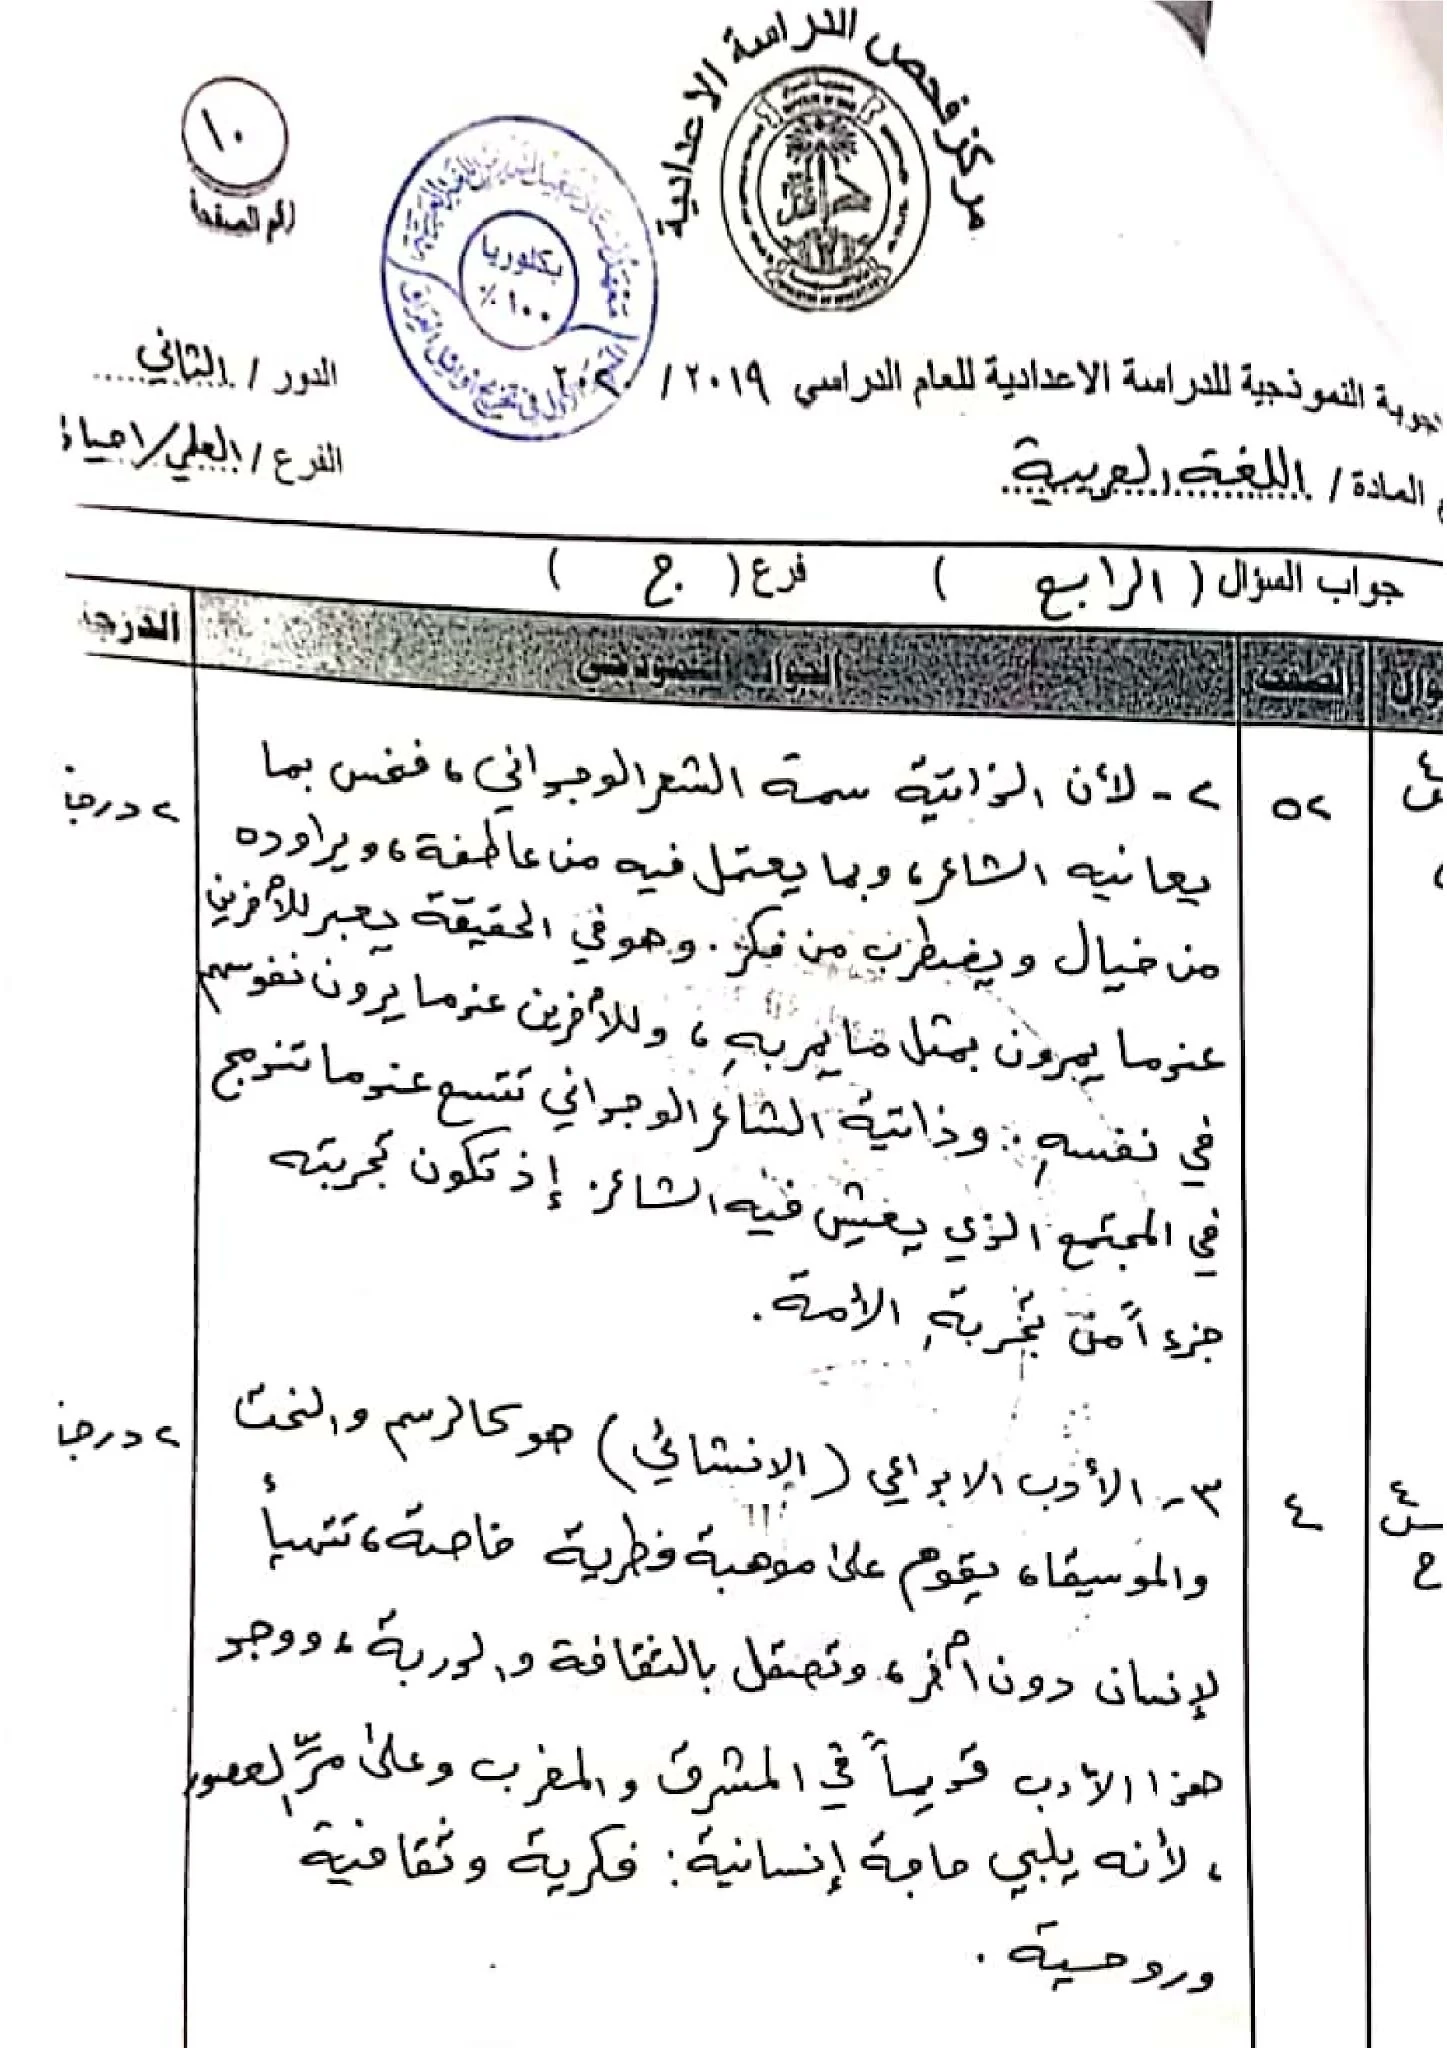 مركز فحص الدراسة الاعدادية
١٠
رقم الصفحة
بكلوريا
١٠٠ %
اجوبة النموذجية للدراسة الاعدادية للعام الدراسي ٢٠١٩ / ٢٠٢٠
الدور / الثاني
المادة / اللغة العربية
الفرع / العلمي/احياء
جواب السؤال ( الرابع ) فرع ( ج )
الصفحة الجواب النموذجي الدرجة
٥٢ ٢- لأن الذاتية سمة الشعر الوجداني، فنحس بما ٢ درجا
يعانيه الشاعر، وبما يعتمل فيه من عاطفة، ويراوده
من خيال ويضطرب من فكر. وهو في الحقيقة يعبر للآخرين
عندما يمرون بمثل ما يمر بهِ، وللآخرين عندما يرون نفوسهم
في نفسهِ. وذاتية الشاعر الوجداني تتسع عندما تندمج
في المجتمع الذي يعيش فيه الشاعر. إذ تكون تجربته
جزءاً من تجربةِ الأمة.
س٤ ٤ ٣- الأدب الابداعي (الإنشائي) هو كالرسم والنحت ٢ درجا
ح والموسيقا، يقوم على موهبة فطرية خاصة، تتهيأ
لإنسان دون آخر، وتصقل بالثقافة والدربة، ووجد
هذا الأدب قديماً في المشرق والمغرب وعلى مرِّ العصور
، لأنه يلبي حاجة إنسانية: فكرية وثقافية
وروحية.